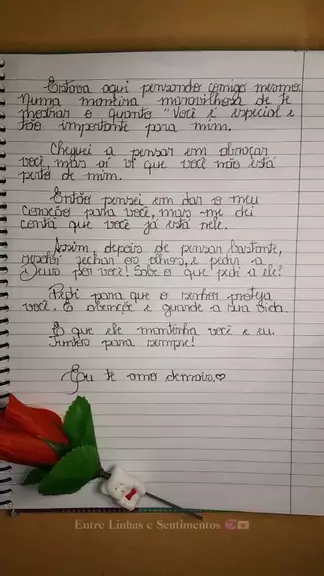 Estava aqui pensando comigo mesmo.
Numa maneira maravilhosa de te
mostrar o quanto "Você é especial e
tão importante para mim.
Cheguei a pensar em abraçar
você, mas aí vi que você não está
perto de mim.
Então pensei em dar o meu
coração para você, mas me dei
conta que você já está nele.
Assim, depois de pensar bastante,
resolvi fechar os olhos, e pedir a
Deus por você! Sabe o que pedi a ele?
Pedi para que o senhor proteja
você. E abençõe e guarde a sua vida.
E que ele mantenha você e eu.
Juntos para sempre!
Eu te amo demais.♡
Entre Linhas e Sentimentos 💞💌